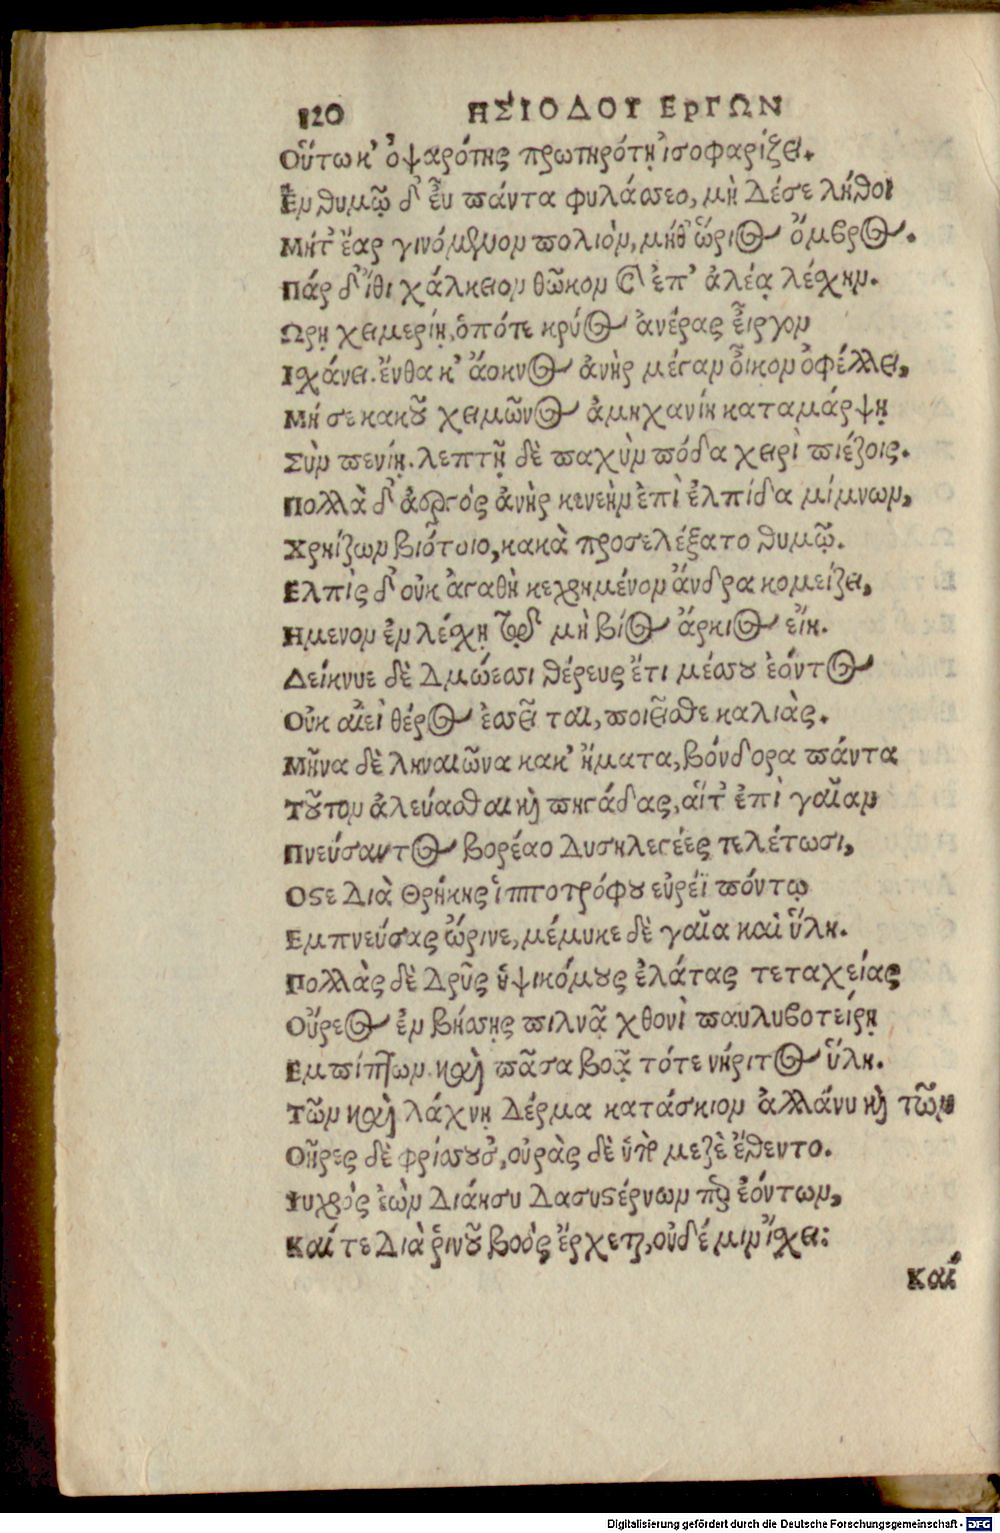 120 ΗΣΙΟΔΟΥ ΕΡΓΩΝ
Οὕτω κ' ὀψαρότης πρωτηρότῃ ἰσοφαρίζει.
Ἐν θυμῷ δ' εὖ πάντα φυλάσσεο, μὴ δέ σε λήθοι
Μήτ' ἔαρ γινόμενον πολιὸν, μήθ' ὥριος ὄμβρος.
Πάρ δ' ἴθι χάλκειον θῶκον καὶ ἐπ' ἀλέᾳ λέχην.
Ωρῃ χειμερίῃ, ὁπότε κρύος ἀνέρας εἶργον
Ιχάνει. ἔνθα κ' ἄοκνος ἀνὴρ μέγαν οἶκον ὀφέλλει,
Μή σε κακοῦ χειμῶνος ἀμηχανίη καταμάρψῃ
Σὺν πενίῃ. λεπτῇ δὲ παχὺν πόδα χειρὶ πιέζοις.
Πολλὰ δ' ἀεργὸς ἀνὴρ κενεὴν ἐπὶ ἐλπίδα μίμνων,
Χρηίζων βιότοιο, κακὰ προσελέξατο θυμῷ.
Ελπὶς δ' οὐκ ἀγαθὴ κεχρημένον ἄνδρα κομείζει,
Ημενον ἐν λέχῃ τῷδ μὴ βίος ἄρκιος εἴη.
Δείκνυε δὲ δμώεσσι θέρευς ἔτι μέσσου ἐόντος
Οὐκ αἰεὶ θέρος ἐσσεῖται, ποιεῖσθε καλιὰς.
Μῆνα δὲ ληναιῶνα κακ' ἤματα, βούδορα πάντα
Τοῦτον ἀλεύασθαι καὶ πηγάδας, αἵτ' ἐπὶ γαῖαν
Πνεύσαντος βορέαο δυσηλεγέες τελέτωσι,
Οστε διὰ Θρήκης ἱπποτρόφου εὐρέϊ πόντῳ
Εμπνεύσας ὤρινε, μέμυκε δὲ γαῖα καὶ ὕλη.
Πολλὰς δὲ δρῦς ὑψικόμους ἐλάτας τεταχείας
Οὔρεος ἐν βήσσῃς πιλνᾷ χθονὶ πουλυβοτείρῃ
Εμπίπτων καὶ πᾶσα βοᾷ τότε νήριτος ὕλη.
Τῶν καὶ λάχνῃ δέρμα κατάσκιον ἀλλάνυ καὶ τῶν
Θῆρες δὲ φρίσσουσ', οὐρὰς δὲ ὑπὸ μεζὲ ἔθεντο.
Ψυχρὸς ἐὼν διάησυ δασυστέρνων περ ἐόντων,
Καί τε διὰ ῥινοῦ βοὸς ἔρχεται, οὐδέ μιν ἴχει:
Καί
Digitalisierung gefördert durch die Deutsche Forschungsgemeinschaft - DFG